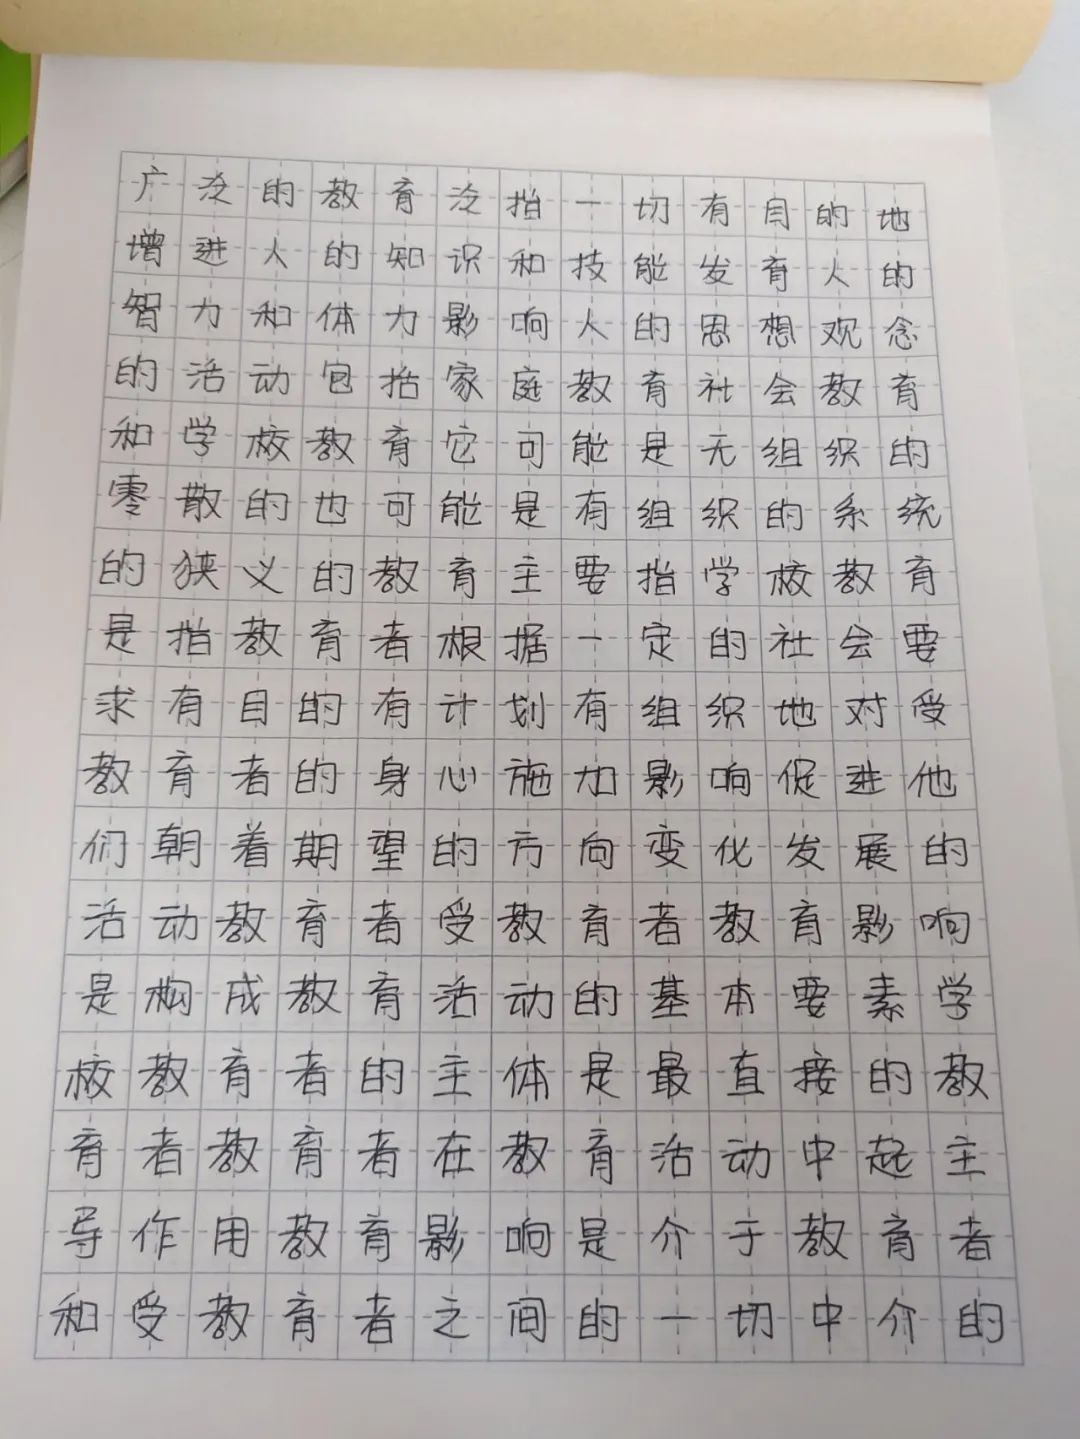 广泛的教育泛指一切有目的地
增进人的知识和技能发育人的
智力和体力影响人的思想观念
的活动包括家庭教育社会教育
和学校教育它可能是无组织的
零散的也可能是有组织的系统
的狭义的教育主要指学校教育
是指教育者根据一定的社会要
求有目的有计划有组织地对受
教育者的身心施加影响促进他
们朝着期望的方向变化发展的
活动教育者受教育者教育影响
是构成教育活动的基本要素学
校教育者的主体是最直接的教
育者教育者在教育活动中起主
导作用教育影响是介于教育者
和受教育者之间的一切中介的